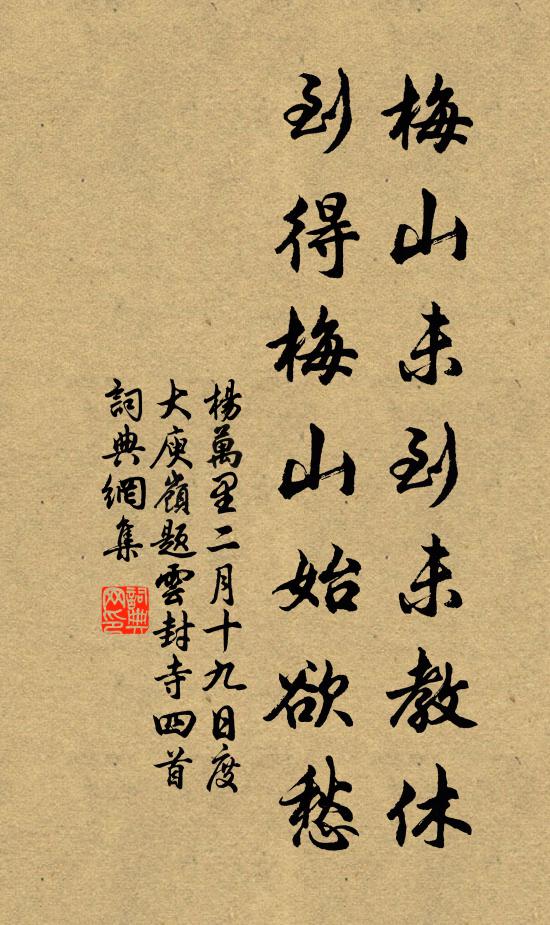 梅山未到未教休
到得梅山始欲愁
楊萬里二月十九日度
大庾嶺題雲封寺四首
詞典網集
詞典
网印